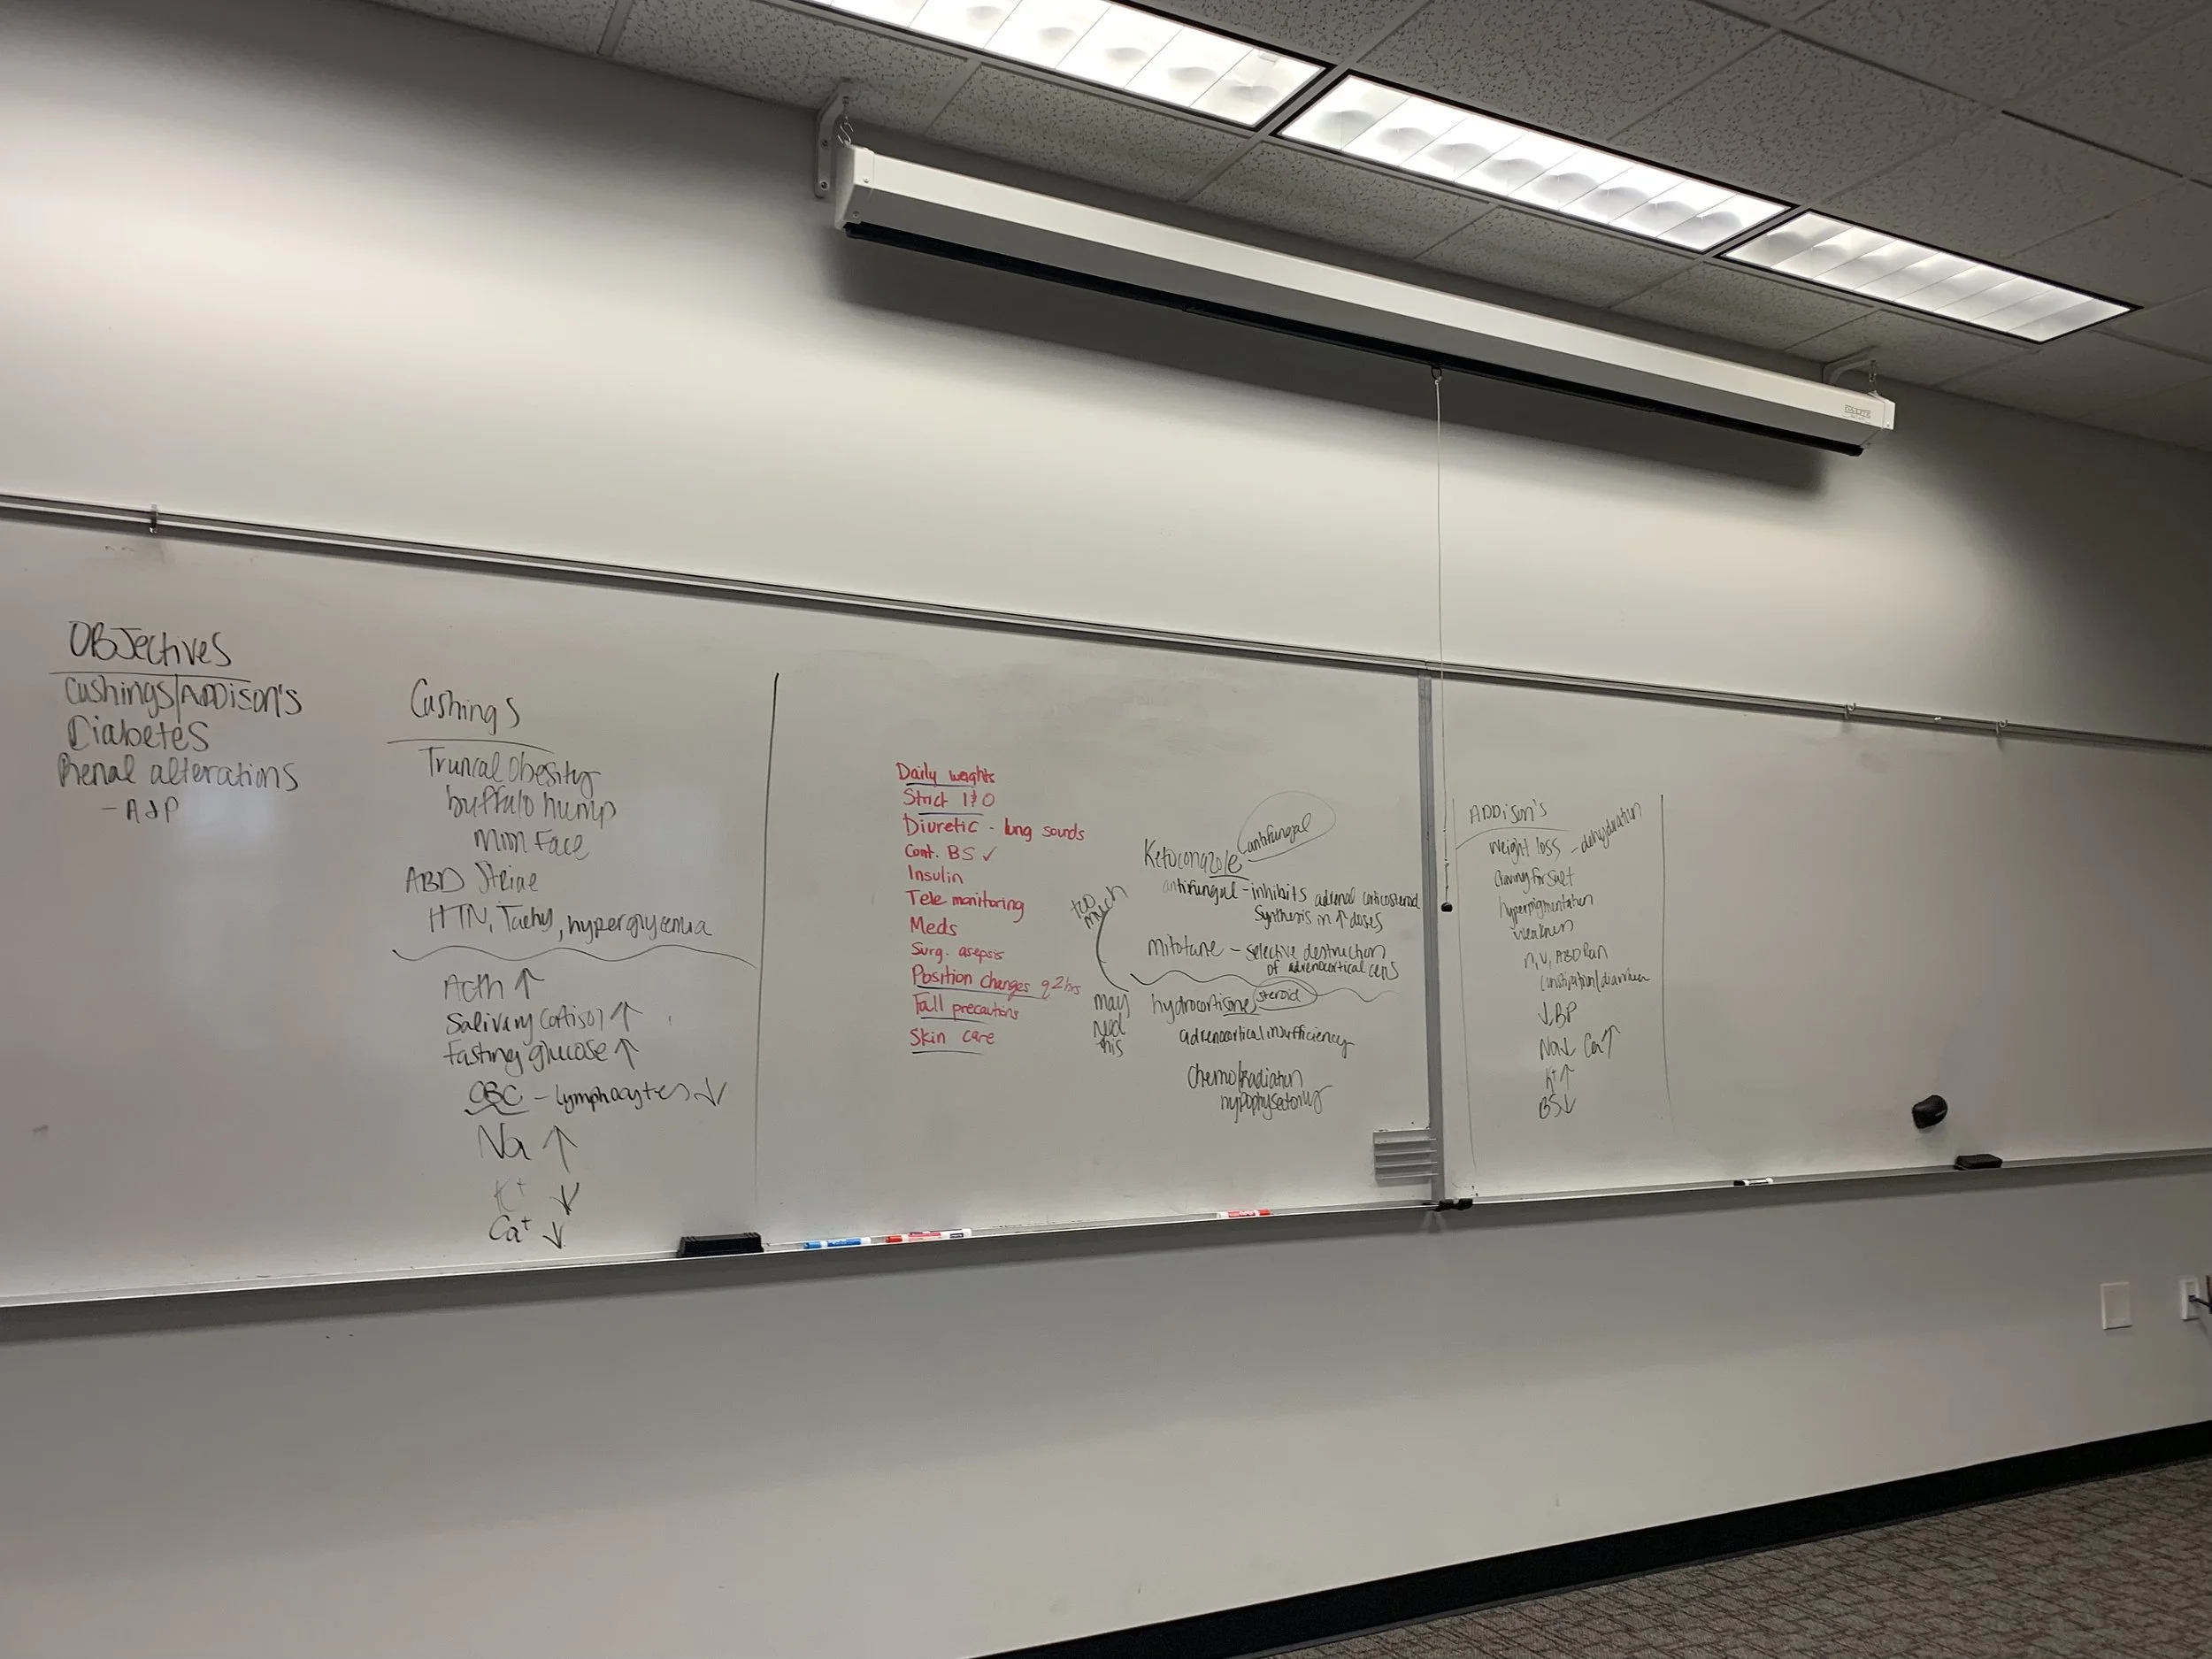 OBJectives
Cushings/ADDison's
Diabetes
Renal alterations
- A&P
Cushings
Truncal Obesity
buffalo hump
Moon Face
ABD Striae
HTN, Tachy, hyperglycemia
Acth ↑
Salivary Cortisol ↑
fasting glucose ↑
CBC - lymphocytes ↓
Na ↑
K+ ↓
Ca+ ↓
Daily weights
Strict I&O
Diuretic - lung sounds
Cont. BS ✓
Insulin
Tele monitoring
Meds
Surg. asepsis
Position changes q2hrs
Fall precautions
Skin care
antifungal
Ketoconazole
antifungal - inhibits adrenal corticosteroid
Synthesis in ↑ doses
too much
mitotane - selective destruction
of adrenocortical cells
may need this
hydrocortisone, steroid
adrenocortical insufficiency
Chemo/radiation
hypophysectomy
ADDison's
Weight loss - dehydration
Craving for Salt
hyperpigmentation
weakness
n, v, ABD Pain
Constipation/diarrhea
↓BP
Na↓ Ca↑
K+↑
BS↓